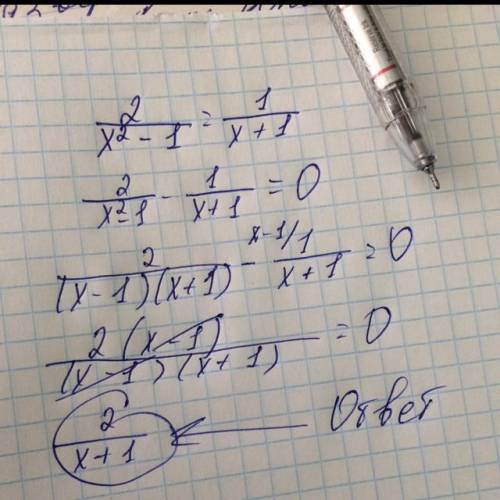 2/(x² - 1) = 1/(x + 1)
2/(x² - 1) - 1/(x + 1) = 0
2/((x - 1)(x + 1)) - x-1/ 1/(x + 1) = 0
2(x - 1)/((x - 1)(x + 1)) = 0
2/(x + 1) ← Ответ